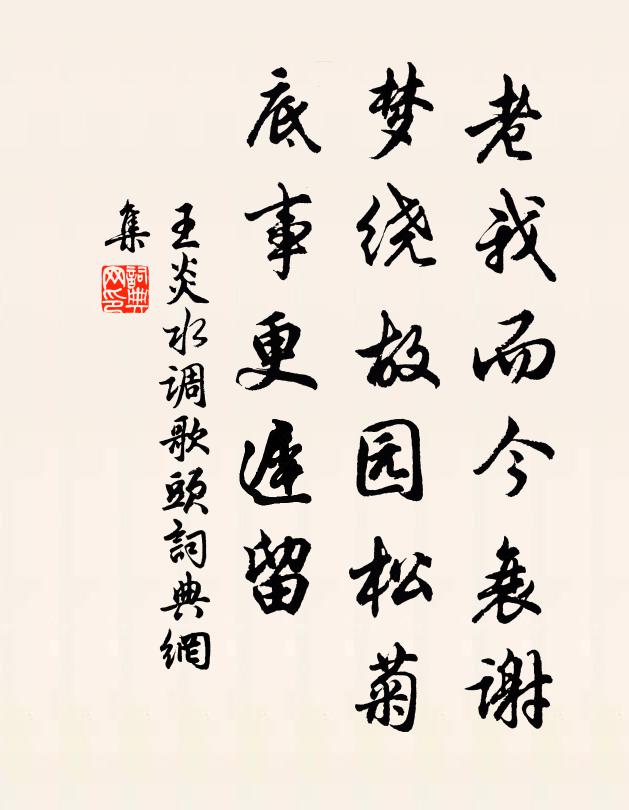 老我而今衰谢
梦绕故园松菊
底事更遲留
王炎水调歌頭詞典網
集
詞典
网印